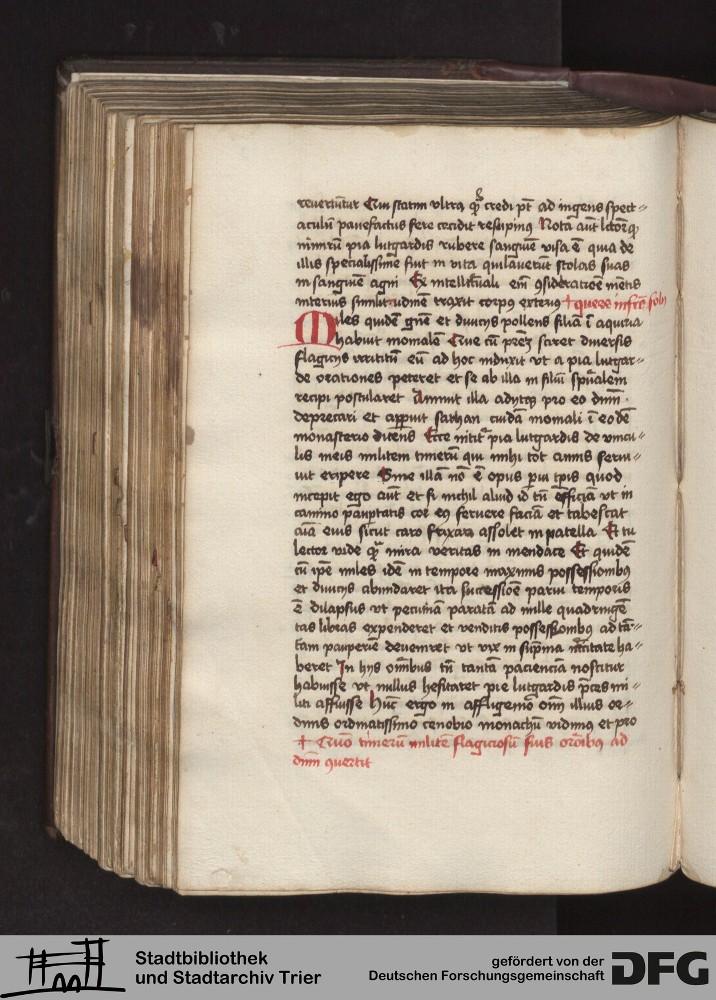 reuertūtur Qui statim vltra q̄ credi pt̄ ad ingens spect⸗
aculū pauefactus fere cecidit resupinus Notā aūt
nimirū pia lutgardis rubere sanguīe visa ē quia de
illis specialissime fiut in vita qui lauerūt stolas suas
in sanguīe agni Ex intellectuali em̄ ꝯsideratōe mētis
interius similitudinem traxit corpus exterius + quere infra
Miles quidē gn̄e et diuicijs pollens filiā ī aquiria
habuit monialē Que cū prēz sciret diuersis
flagicijs irretitū eū ad hoc induxit vt a pia lutgar⸗
de orationes peteret et se ab illa in filiū sp̄ualem
recipi postularet Annuit illa pro eo dn̄m
deprecari et apparuit sathan cuidā moniali ī eodē
monasterio dicens Ecce nitit᷑ pia lutgardis de vincu⸗
lis meis militem timerū qui mihi tot annis serui⸗
uit eripere Sine illā nō ē opus sui tp̄is quod
incepit ego aūt et si nichil aliud id tn̄ efficiā vt in
camino paup̄tatis cor eꝰ feruere faciā et tabescat
aīa eius sicut caro frixata assolet in patella Et tu
lector vide q̄ mira veritas in mendace Et quidē
cū ip̄e miles idē in tempore maximis possessionibꝰ
et diuicijs abundaret ita successiōe parui temporis
ē dilapsus vt pecuniā paratā ad mille quadringē
tas libras expenderet et venditis possessionibꝰ ad tā⸗
tam pauperiē deueniret vt vix in sup̄ma necessitate ha⸗
beret In hijs om̄ibus tn̄ tantā pacienciā noscitur
habuisse vt nullus hesitaret pie lutgardis p̄ces mi⸗
liti affuisse Hūc ergo in affligenio om̄ illius or⸗
dinis ordinatissimo cenobio monachū vidimus et pro
+ Quō timerū militē flagiciosū suis orōibꝰ ad
dn̄m ꝯuertit
Stadtbibliothek
und Stadtarchiv Trier
gefördert von der
Deutschen Forschungsgemeinschaft
DFG